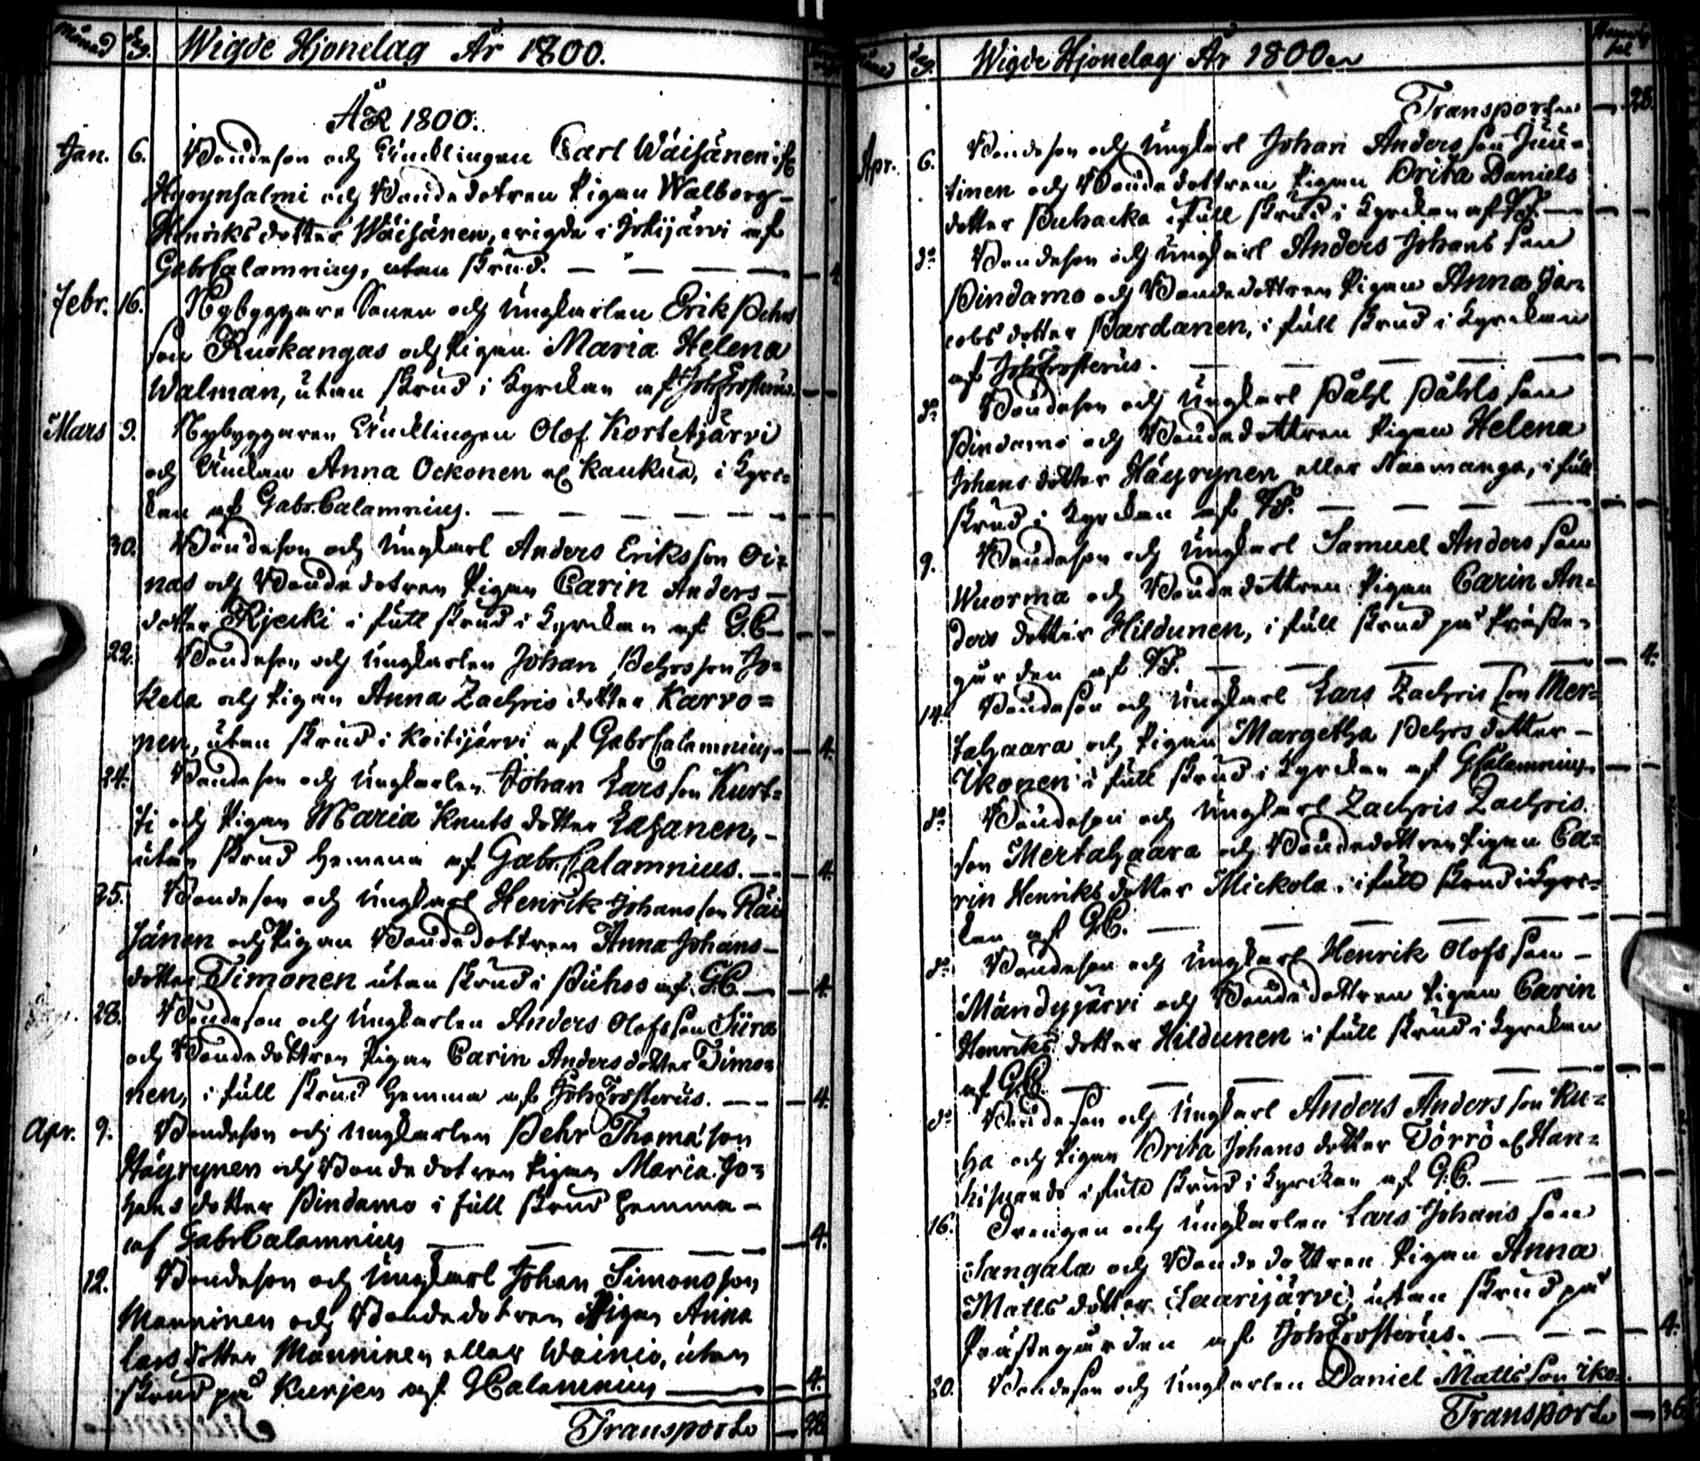 Månad dag. Wigde Hjonelag År 1800.
ÅR 1800.
Jan. 6. Bondeson och Encklingen Carl Wäisänen if
Hyrynsalmi och Bondedotren Pigan Walborg
Henriksdotter Wäisänen, wigde i Jokijärvi af
Gabr Calamnius, utan skrud. 4
Febr. 16. Nybyggare Sonen och Ungkarlen Erik Pehrs
son Ruokangas och Pigan Maria Helena
Walman, utan skrud i Kyrckan af Joh Frosterus.
Mars 9. Nybyggaren Encklingen Olof Kortetjärvi
och Enckan Anna Ockonen el Kaukua, i Kyrc=
kan af Gabr. Calamnius.
30. Bondeson och Ungkarl Anders Eriksson Oi=
nas och Bondedotren Pigan Carin Anders
dotter Kjecki i full skrud i Kyrckan af G.C.
22. Bondeson och Ungkarlen Johan Pehrsson Jo=
kela och Pigan Anna Zachris dotter Karvo=
nen, utan skrud i Koitijärvi af Gabr Calamnius. 4.
24. Bondeson och Ungkarlen Johan Larsson Kurt=
ti och Pigan Maria Knuts dotter Lasanen,
utan skrud hemma af Gabr. Calamnius. 4.
25. Bondeson och Ungkarl Henrik Johansson Räi
sänen och Pigan Bondedottren Anna Johans
dotter Timonen utan skrud i Puhos af GC. 4.
28. Bondeson och Ungkarlen Anders Olofsson Siira
och Bondedottren Pigan Carin Andersdotter Timo=
nen, i full skrud hemma af Joh Frosterus. 4.
Apr. 9. Bondeson och Ungkarlen Pehr Thomason
Häyrynen och Bondedotren Pigan Maria Jo=
hans dotter Pindamo i full skrud hemma
af Gabr Calamnius 4.
12. Bondeson och Ungkarl Johan Simonsson
Manninen och Bondedotren Pigan Anna
Lars dotter Manninen eller Wainio, utan
skrud på Kurjen af G Calamnius 4.
Transport 28
dag. Wigde Hjonelag År 1800
Transport 28.
Apr. 6. Bondeson och Ungkarl Johan Andersson Juu=
tinen och Bondedottren Pigan Brita Daniels
dotter Puhacka i full skrud i Kyrckan af JF.
do Bondeson och Ungkarl Anders Johansson
Pindamo och Bondedottren Pigan Anna Ja=
cobs dotter Pardanen, i full skrud i Kyrckan
af Joh Frosterus.
do Bondeson och Ungkarl Påhl Påhlsson
Pindamo och Bondedottren Pigan Helena
Johans dotter Häyrynen eller Naamanga, i full
skrud i Kyrckan af JF.
9. Bondeson och Ungkarl Samuel Andersson
Wuorma och Bondedottren Pigan Carin An=
ders dotter Hildunen, i full skrud på Präste=
gården af JF. 4.
14. Bondeson och Ungkarl Lars Zachrisson Mer=
tahaara och Pigan Margetha Pehrsdotter
Ikonen i full skrud i Kyrckan af G Calamnius
do Bondeson och Ungkarl Zachris Zachris
son Mertahaara och Bondedottren Pigan Ca=
rin Henriksdotter Mickola i full skrud i Kyrc=
kan af GC.
do Bondeson och Ungkarl Henrik Olofsson
Mändyjärvi och Bondedottren Pigan Carin
Henriks dotter Hildunen i full skrud i Kyrckan
af G.C.
do Bondeson och Ungkarl Anders Andersson Ku=
ha och Pigan Brita Johansdotter Törrö el Han=
hisuando i full skrud i Kyrckan af G.C.
16. Drengen och Ungkarlen Lars Johansson
Sangala och Bondedottren Pigan Anna
Matts dotter Saarijärvi, utan skrud på
Prästegården af Joh Frosterus. 4.
20. Bondeson och Ungkarlen Daniel Mattsson Iko=
Transport 36